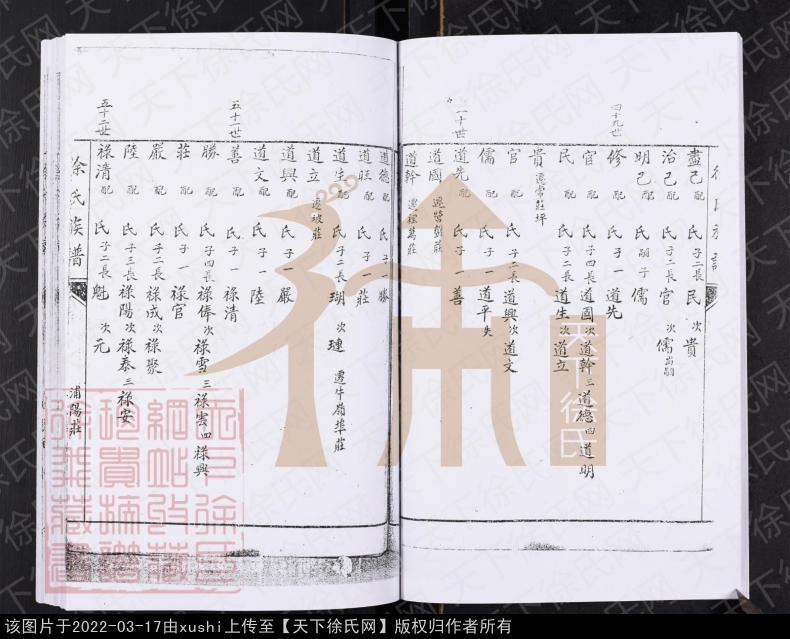 四十九世
盡己 配 氏 子二長 民 次 貴
治己 配 氏 子二長 官 次 儒 出嗣
明己 配 氏 嗣子 儒
修 配 氏 子一 道先
官 配 氏 子四長 道國 次 道幹 三 道德 四 道明
民 配 氏 子二長 道生 次 道立
貴 遷常莊坪
官 配 氏 子二長 道興 次 道文
儒 配 氏 子一 道平 失
十世
道先 配 氏 子一 善
道國
道幹
道德 配 氏 子一 勝
道旺 配 氏 子一 莊
道生 配 氏 子二長 瑚 次 璉 遷牛嶺埠莊
道立 遷坡莊
道興 配 氏 子一 嚴
道文 配 氏 子一 陸
五十一世
善 配 氏 子一 祿清
勝 配 氏 子四長 祿俸 次 祿雪 三 祿雲 四 祿興
莊 配 氏 子一 祿官
嚴 配 氏 子二長 祿成 次 祿聚
陸 配 氏 子三長 祿陽 次 祿泰 三 祿安
五十二世
祿清 配 氏 子二長 魁 次 元
徐氏族譜
浦陽莊
天下徐氏
该图片于2022-03-17由xushi上传至【天下徐氏网】版权归作者所有